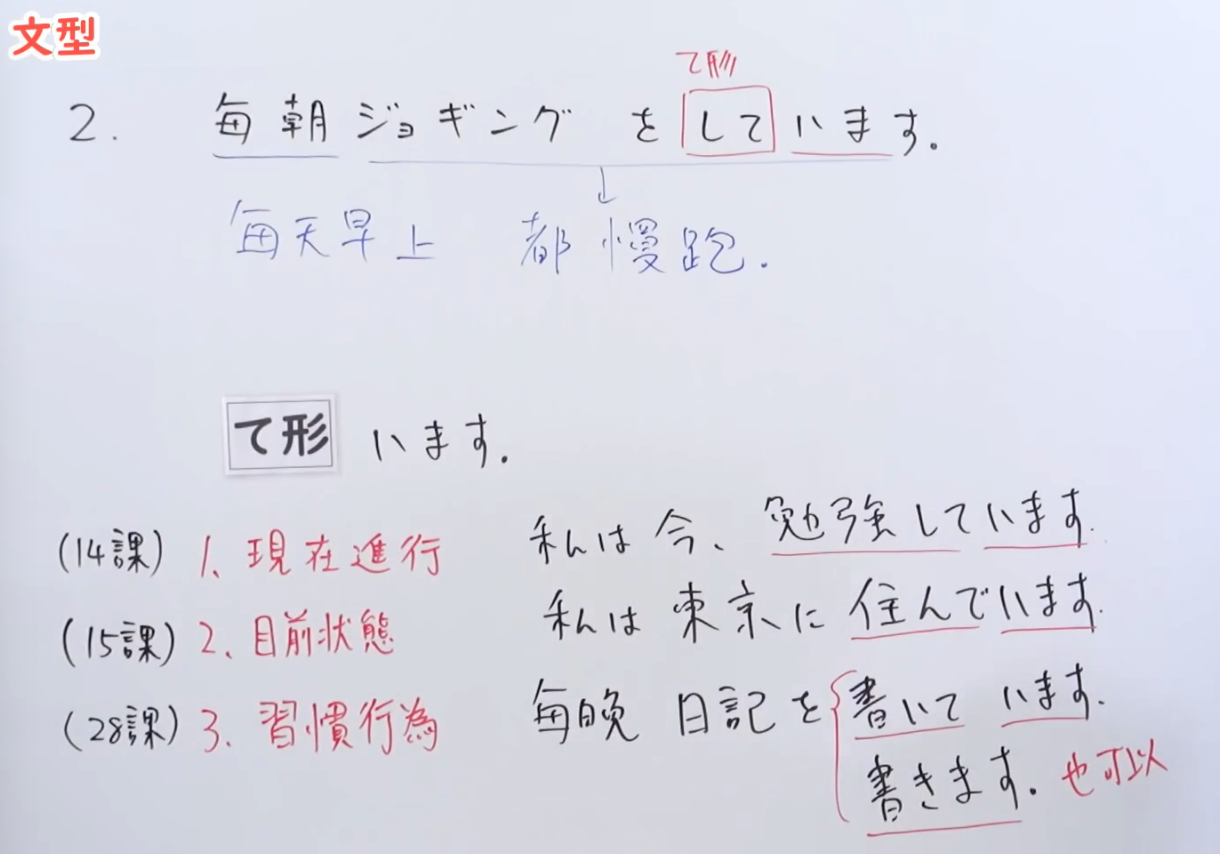 文型
て形
2. 毎朝ジョギングをしています.
毎天早上 都慢跑.
て形 います.
(14課) 1. 現在進行 私は今、勉強しています.
(15課) 2. 目前状態 私は東京に住んでいます.
(28課) 3. 習慣行為 毎晩 日記を書いています.
書きます. 也可以